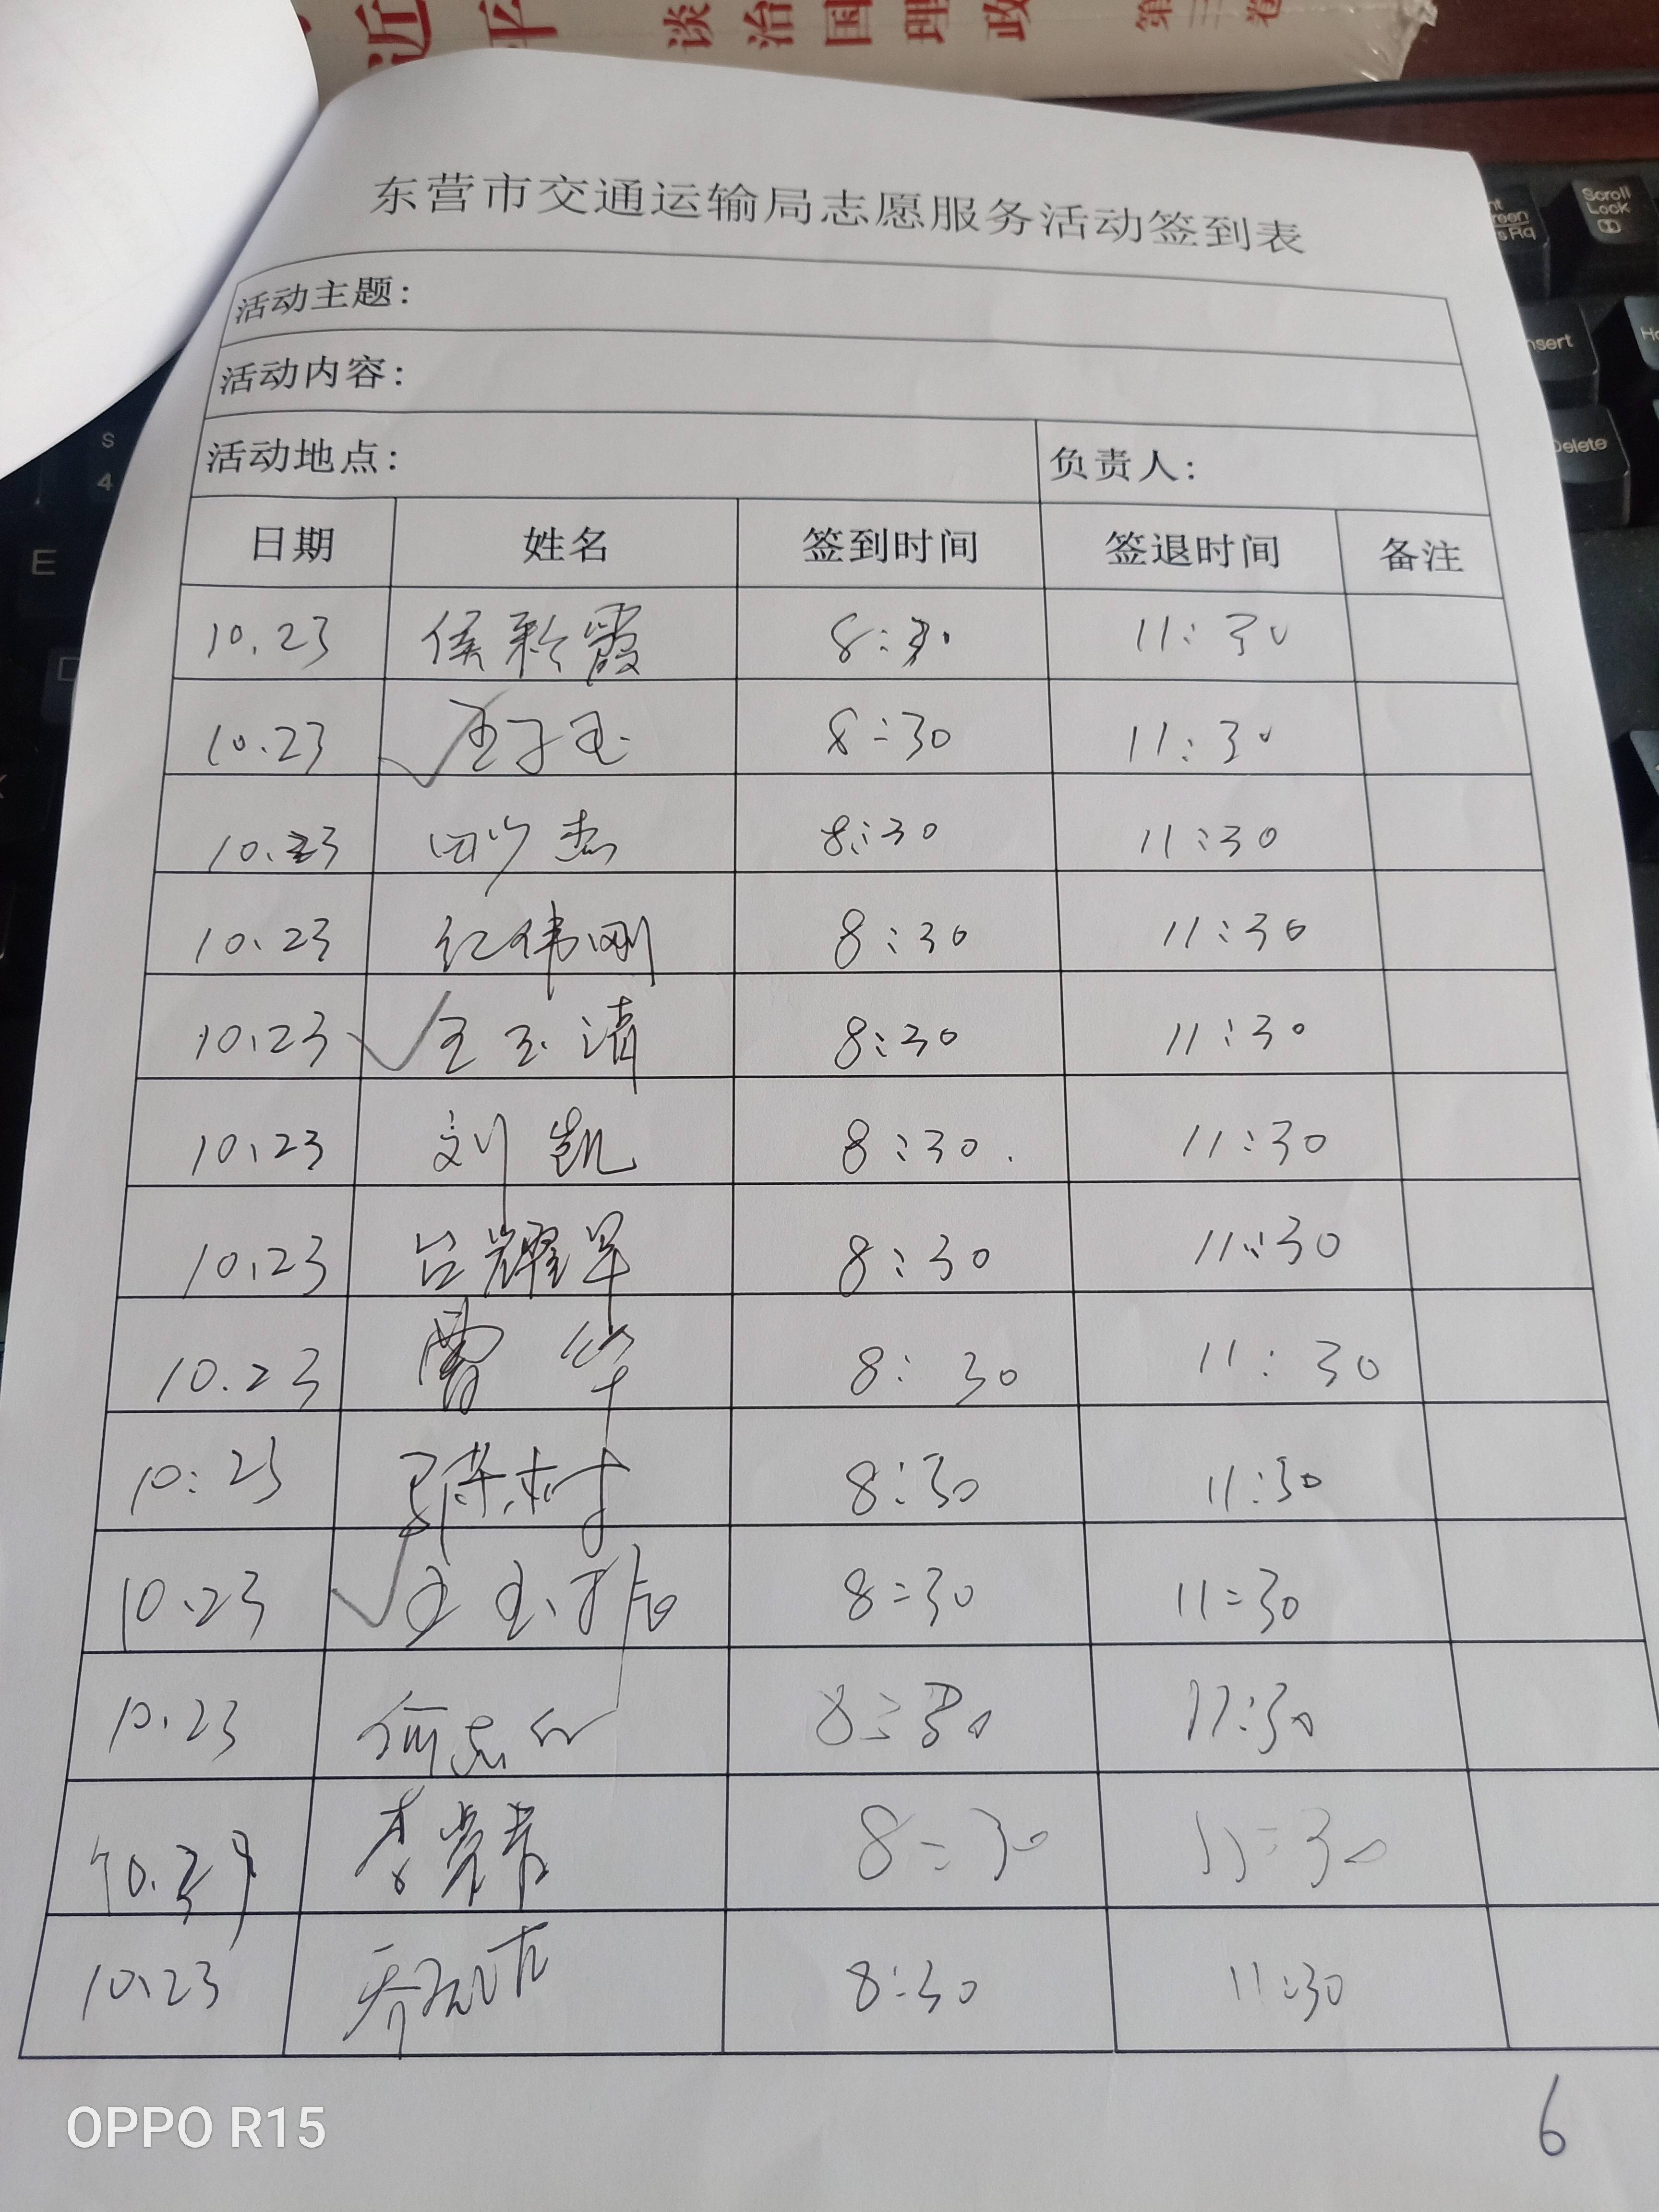 近平
谈治国理政
第三卷
Scroll
Lock
Insert
Delete
S
4
E
东营市交通运输局志愿服务活动签到表
活动主题：
活动内容：
活动地点： 负责人：
日期 姓名 签到时间 签退时间 备注
10.23 侯彩霞 8:30 11:30
10.23 王子玉 8:30 11:30
10.23 杰 8:30 11:30
10.23 纪伟刚 8:30 11:30
10.23 王玉清 8:30 11:30
10.23 刘凯 8:30. 11:30
10.23 台耀军 8:30 11:30
10.23 曹华 8:30 11:30
10:23 树 8:30 11:30
10.23 王玉 8:30 11:30
10.23 何志 8:30 11:30
10.23 李 8:30 11:30
10.23 乔 8:30 11:30
6
OPPO R15